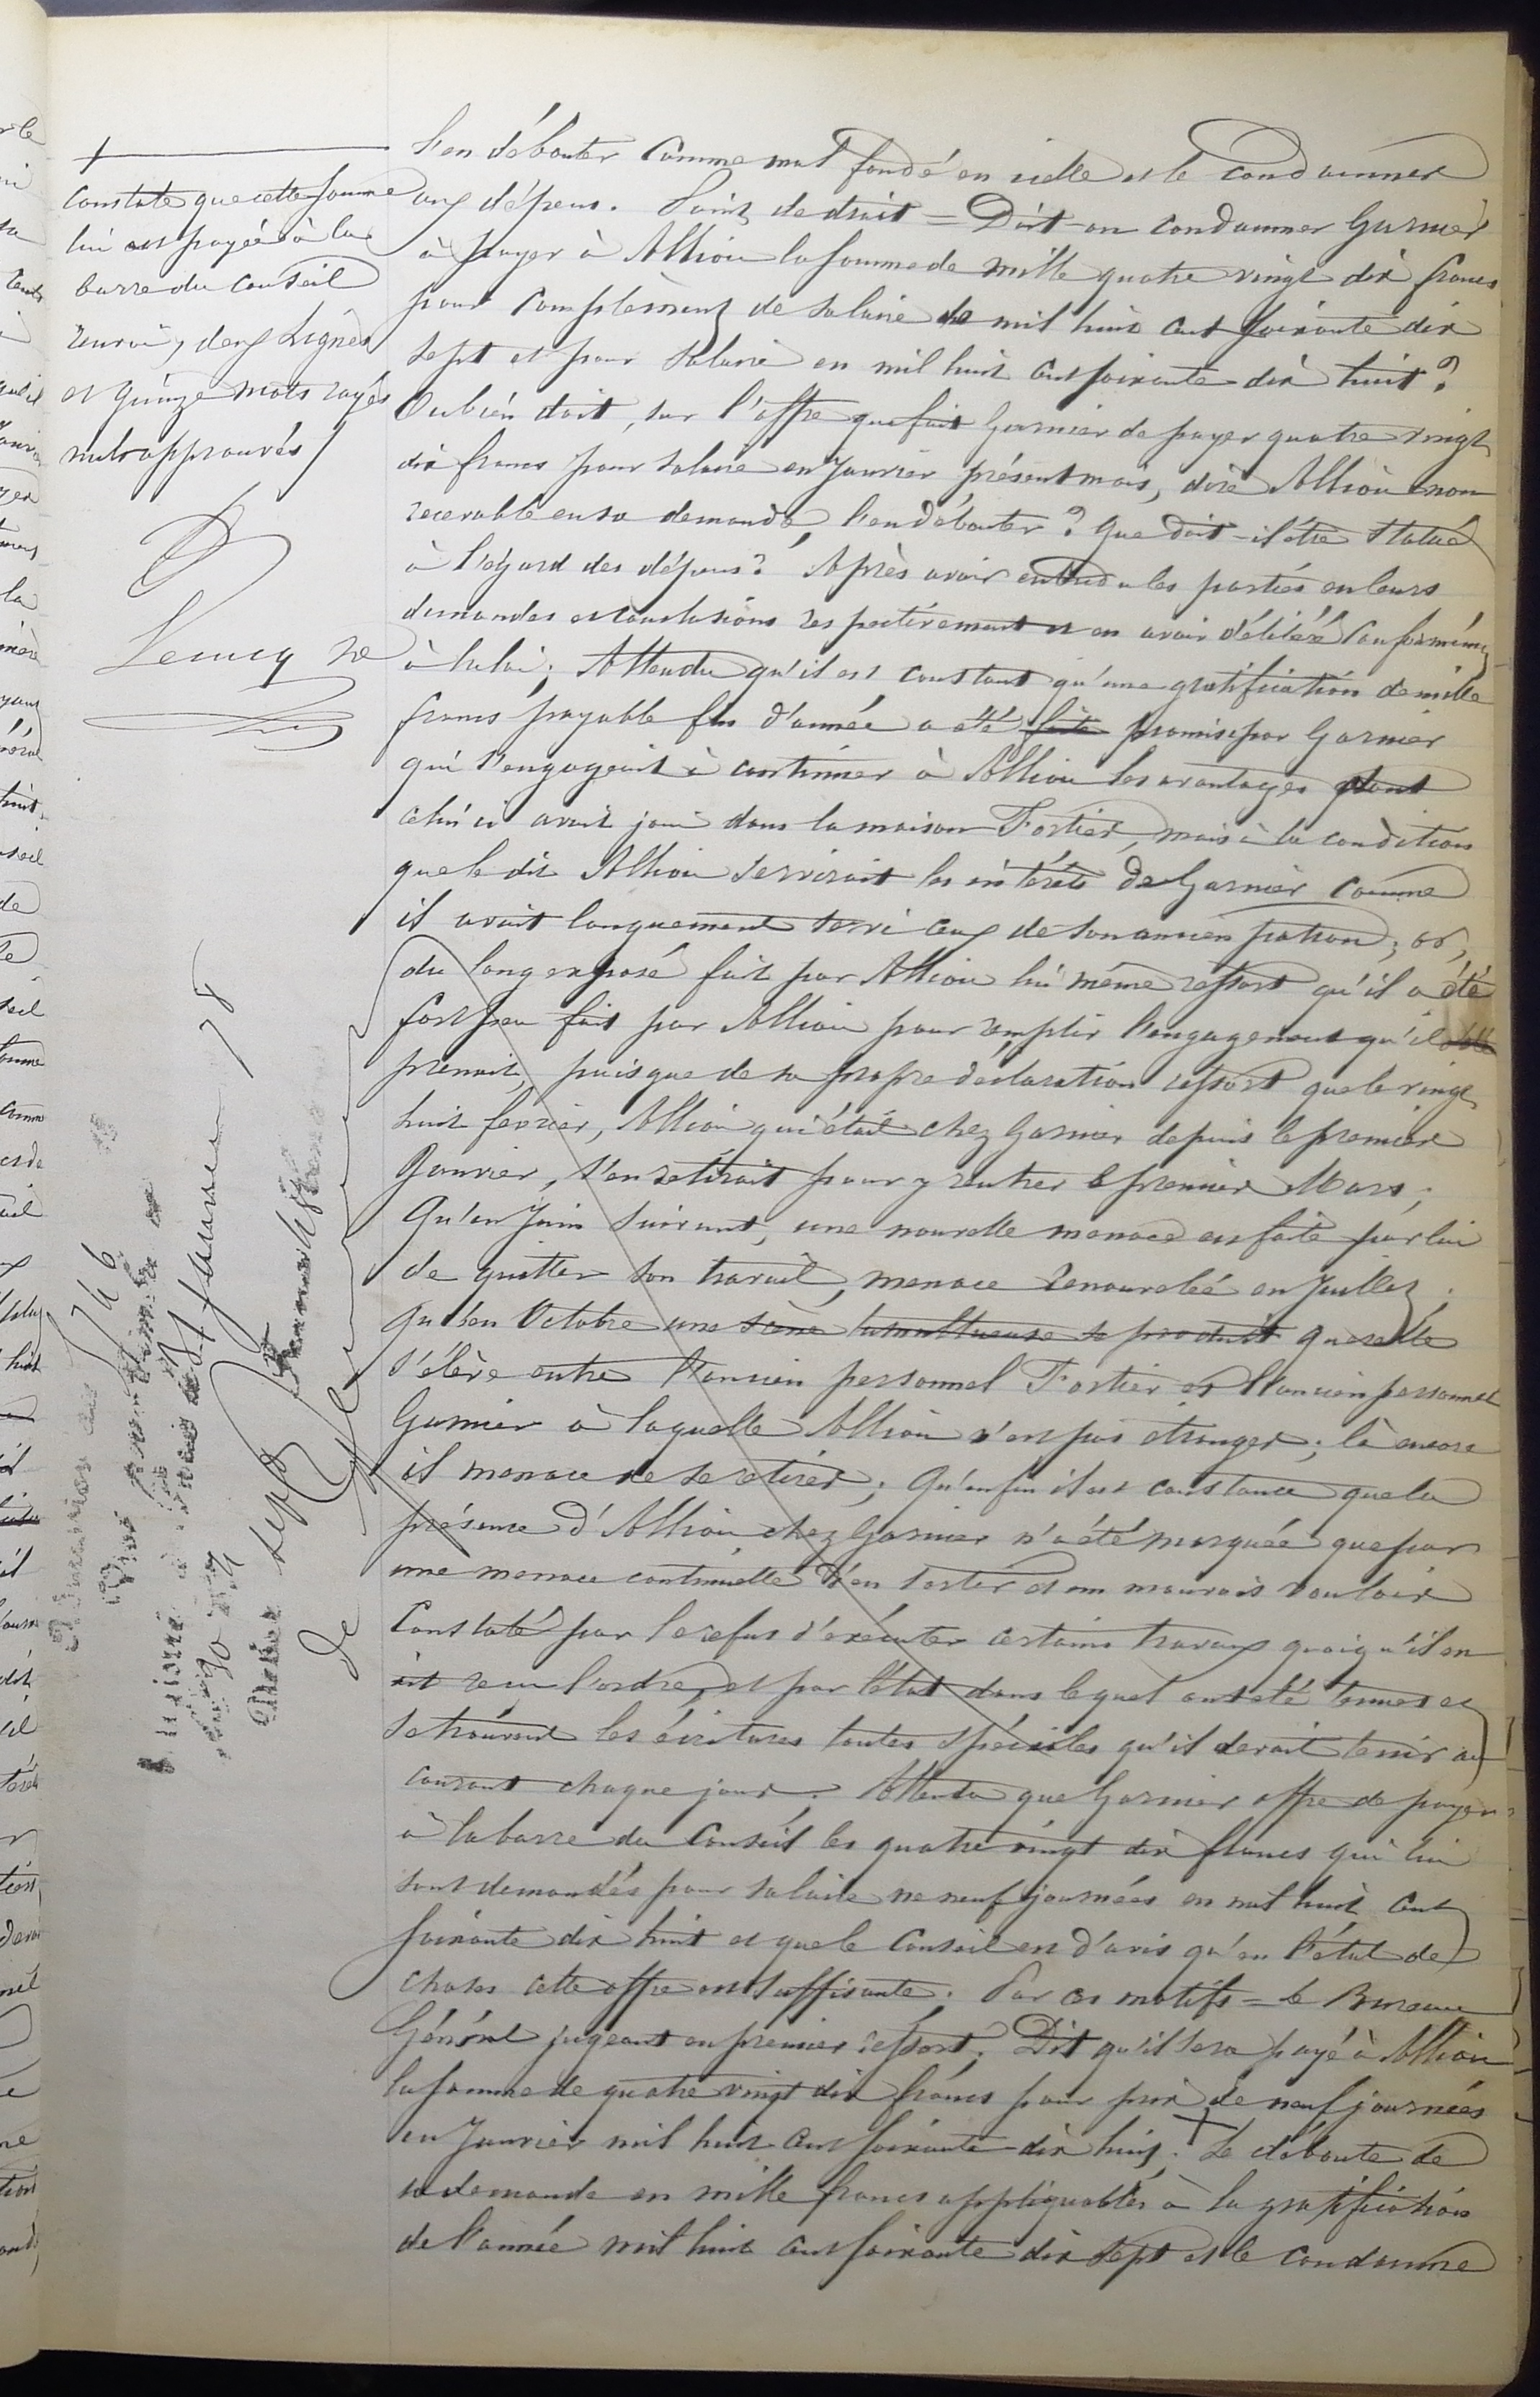 +
constate que cette somme
lui est payée à la
barre du Conseil
renvoi, deux lignes
et quinze mots rayés
nuls approuvés /
Lecucq
l'en débouter comme mal fondé en icelle et le condamner
aux dépens. Point de droit = Doit-on condamner Garnier
à payer à Allion la somme de mille quatre vingt dix francs
pour complément de salaire de mil huit cent soixante dix
sept et pour salaire en mil huit cent soixante dix huit ?
Ou bien doit, sur l'offre que fait Garnier de payer quatre vingt
dix francs pour salaire en Janvier présent mois, dire Allion non
recevable en sa demande, l'en débouter ? Que doit-il être statué
à l'égard des dépens ? Après avoir entendu les parties en leurs
demandes et conclusions respectivement et en avoir délibéré conformément
à la loi ; Attendu qu'il est constant qu'une gratification de mille
francs payable fin d'année a été faite promise par Garnier
qui s'engageait à continuer à Allion les avantages dont
celui ci avait joui dans la maison Fortier, mais à la condition
que le dit Allion servirait les intérêts de Garnier comme
il avait longuement servi ceux de son ancien patron ; or,
du long exposé fait par Allion lui même ressort qu'il a été
fort peu fait par Allion pour remplir l'engagement qu'il
prenait, puisque de sa propre déclaration ressort que le vingt
huit fevrier, Allion qui était chez Garnier depuis le premier
Janvier, s'en retirait pour y rentrer le premier Mars ;
Qu'en Juin suivant, une nouvelle menace est faite par lui
de quitter son travail, menace renouvelée en Juillet ;
Qu'en Octobre une scène tumultueuse se produit querelle
s'élève entre l'ancien personnel Fortier et l'ancien personnel
Garnier à laquelle Allion n'est pas étranger ; là encore
il menace de se retirer ; Qu'enfin il est constance que la
présence d'Allion chez Garnier n'a été marquée que par
une menace continuelle d'en sortir et un mauvais vouloir
constaté par le refus d'exécuter certains travaux quoiqu'il en
ait reçu l'ordre, et par l'état dans lequel ont été tenues et
se trouvent les écritures toutes spéciales qu'il devait tenir au
courant chaque jour. Attendu que Garnier offre de payer
à la barre du Conseil les quatre vingt dix francs qui lui
sont demandés pour salaire de neuf journées en mil huit cent
soixante dix huit et que le Conseil est d'avis qu'en l'état de
choses cette offre est suffisante. Par ces motifs = le Bureau
Général jugeant en premier ressort ; Dit qu'il sera payé à Allion
la somme de quatre vingt dix francs pour prix de neuf journées
en Janvier mil huit cent soixante dix huit. + Le déboute de
sa demande en mille francs appliquables à la gratification
de l'année mil huit cent soixante dix sept et le condamne